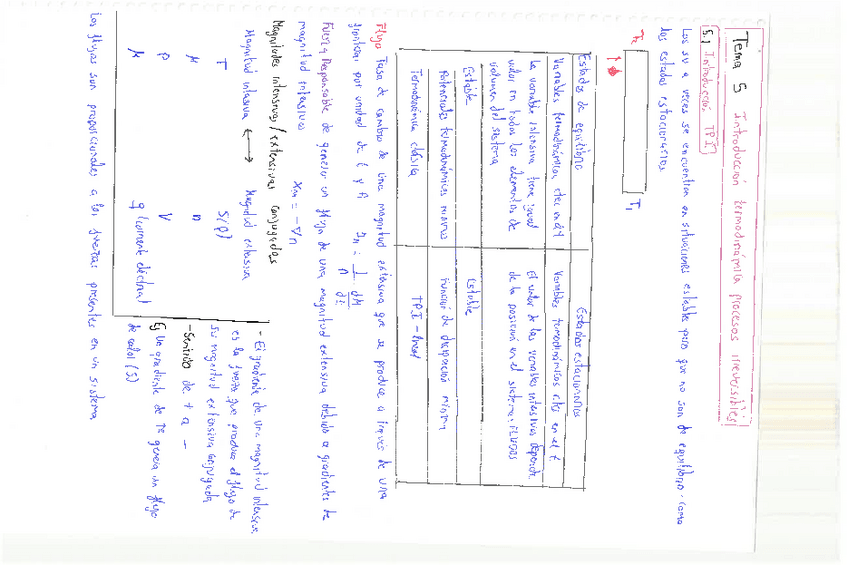 Tema 5 Introducción termodinámica procesos irreversibles
5.1 Introducción TPI
Los su a veces se encuentran en situaciones estables pero que no son de equilibrio. como
los estados estacionarios
T2 T1
Estados de equilibrio
Estados estacionarios
Variables termodinámicas ctes en d y t
Variables termodinámicas ctes en el t.
La variable intensiva tiene igual
valor en todos los elementos de
volumen del sistema
El valor de las variables intensivas depende
de la posición en el sistema. FLUJOS
Estable
Estable
Potenciales termodinámicos mínimos
Función de disipación mínima
Termodinámica clásica
TPI - lineal
Flujo Tasa de cambio de una magnitud extensiva que se produce a través de una
frontera por unidad de t y A Jn = 1/A dM/dt
Fuerza Responsable de generar un flujo de una magnitud extensiva debido a gradientes de
magnitud intensivas
Xn = -∇n
Magnitudes intensivas/extensivas conjugadas
Magnitud intesiva ↔ Magnitud extensiva
T S(Q)
μ n
P V
q (corriente eléctrica)
- El gradiente de una magnitud intensiva,
es la fuerza que produce el flujo de
su magnitud extensiva conjugada
- Sentido de + a -
Un gradiente de Tª genera un flujo
de calor (S)
Los flujos son proporcionales a las fuerzas presentes en un sistema